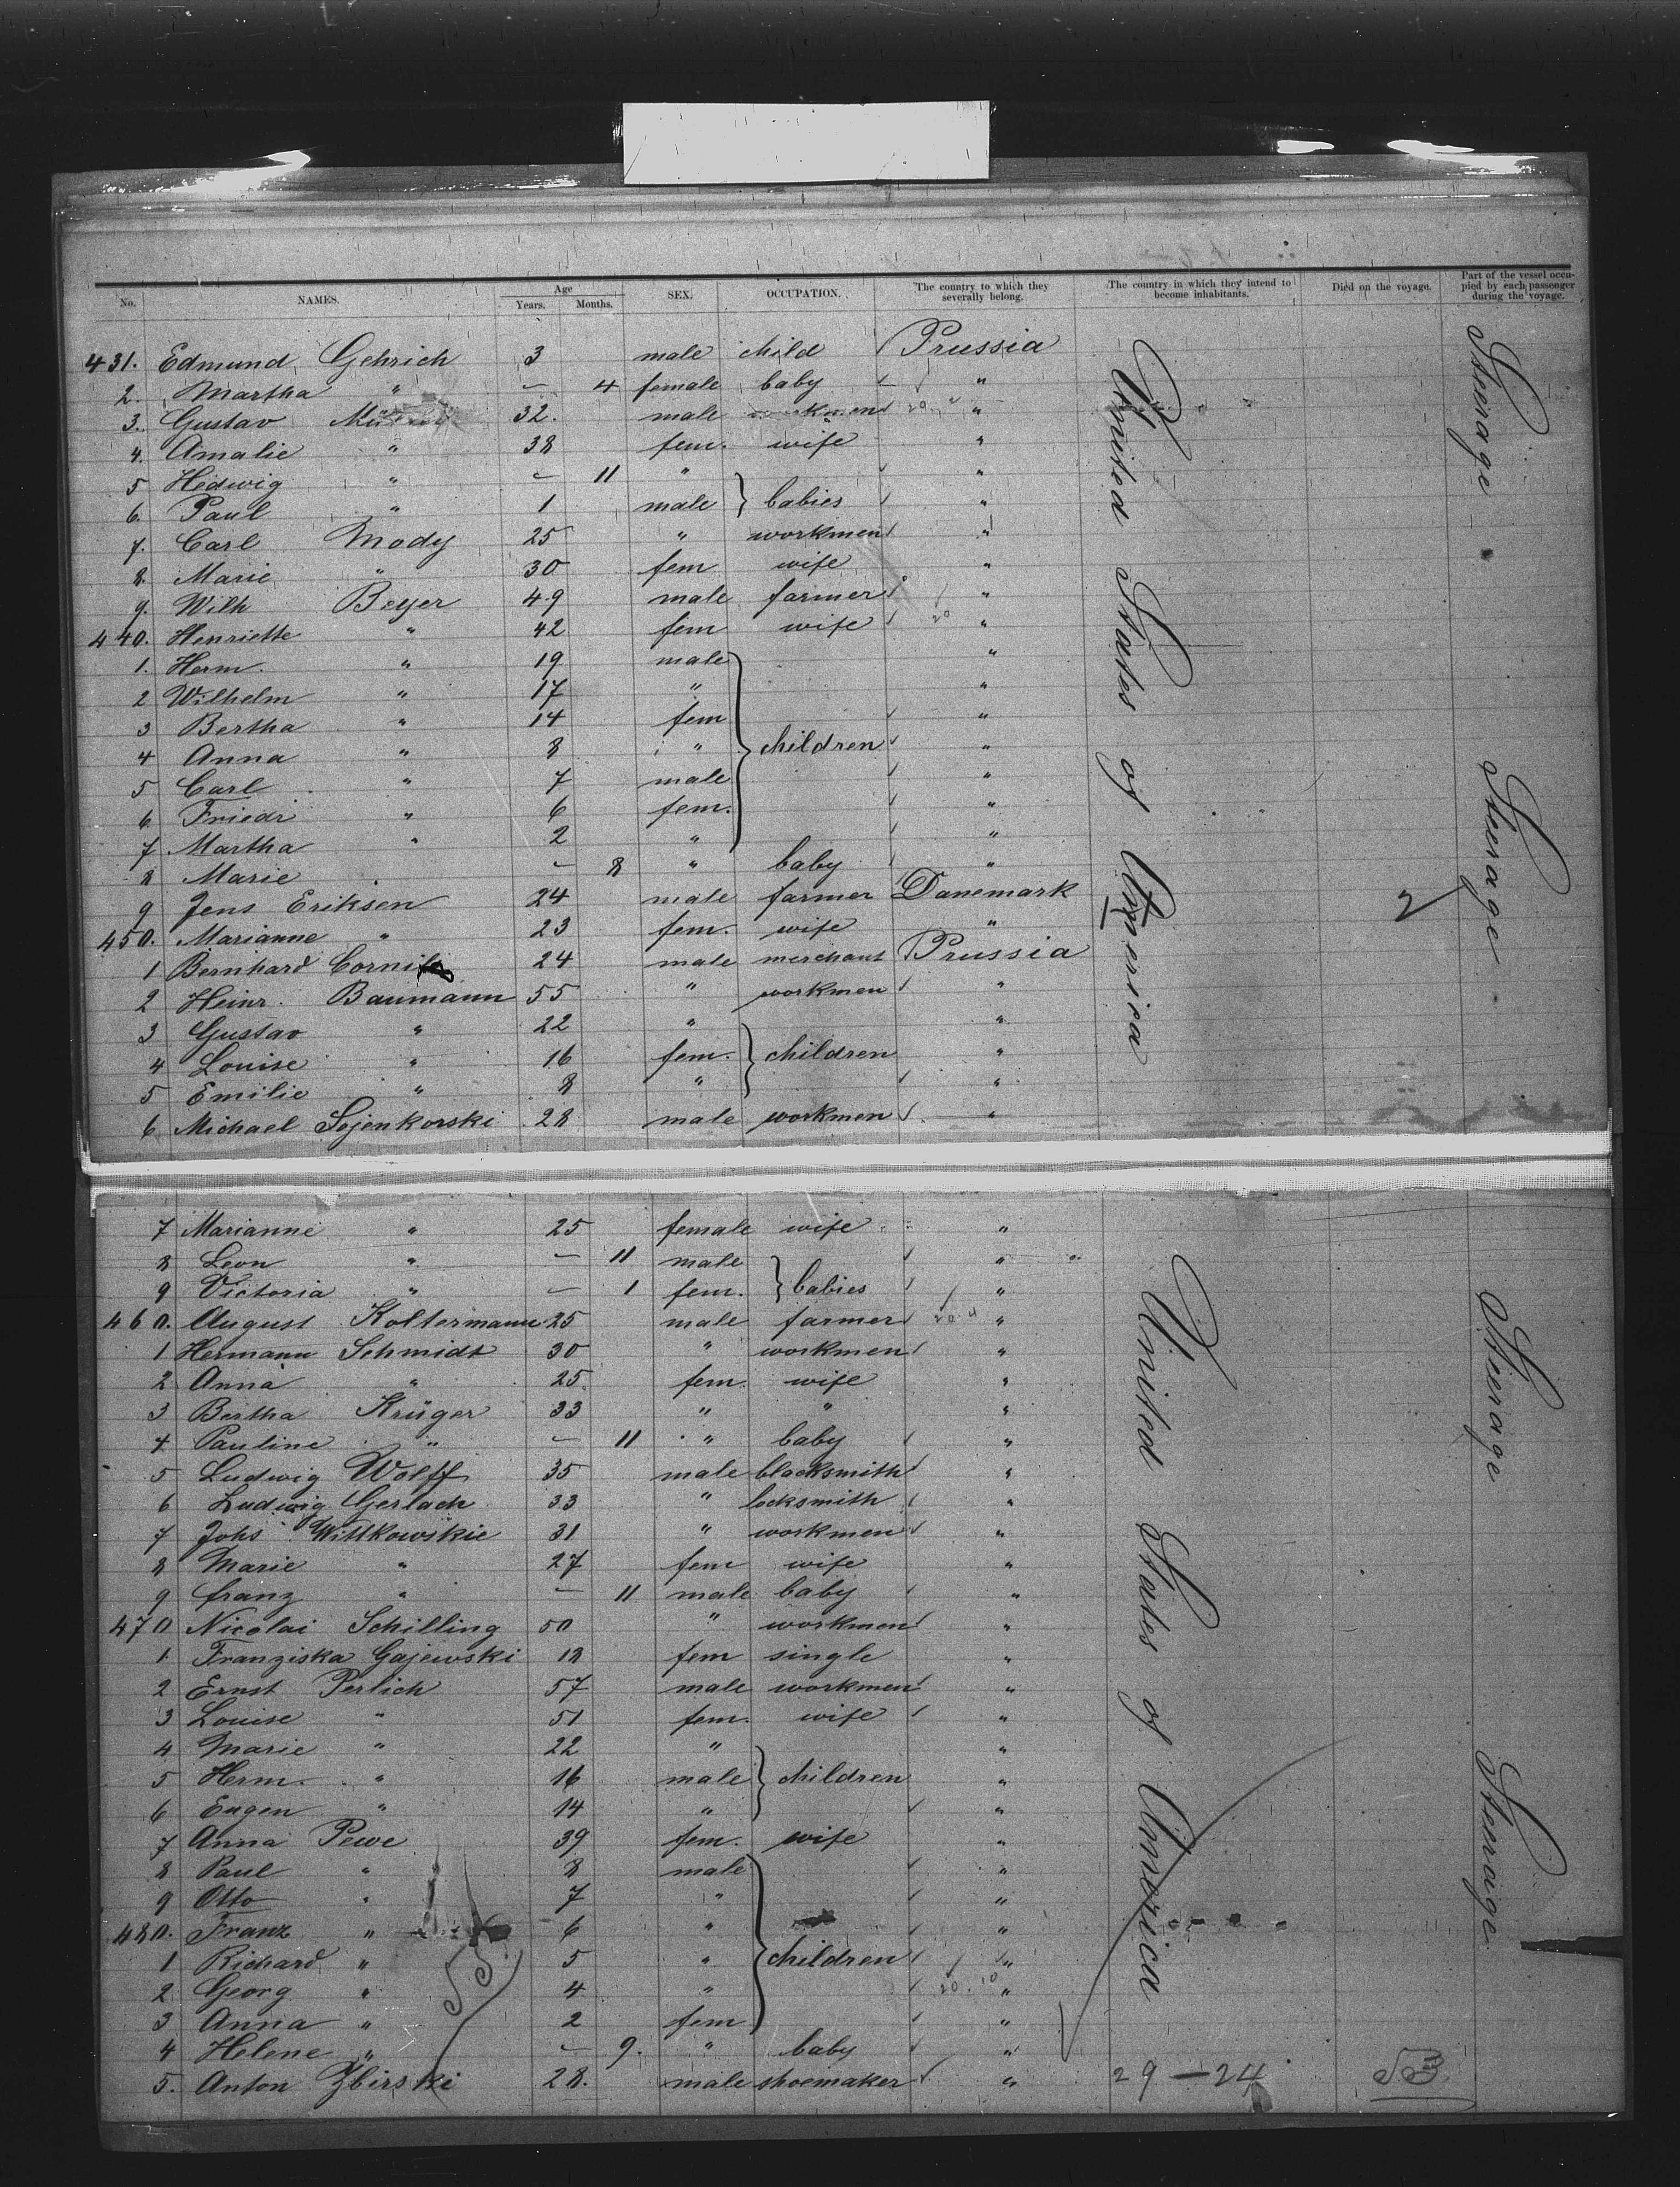 No. NAMES. Age Years. Months. SEX. OCCUPATION. The country to which they severally belong. The country in which they intend to become inhabitants. Died on the voyage. Part of the vessel occupied by each passenger during the voyage.
431. Edmund Gehrich 3 male child Prussia
2. Martha " — 4 female baby "
3. Gustav 32. male workmen "
4. Amalie " 38 fem. wife "
5 Hedwig " — 11 " "
6. Paul " 1 male } babies "
7. Carl Mody 25 " workmen "
8. Marie " 30 fem wife "
9. Wilh Beyer 49 male farmer "
440. Henriette " 42 fem wife "
1. Herm. " 19 male "
2 Wilhelm " 17 " "
3 Bertha " 14 fem "
4 Anna " 8 " } children "
5 Carl " 7 male "
6 Friedr " 6 fem. "
7 Martha " 2 " "
8 Marie — 8 " baby "
9 Jens Eriksen 24 male farmer Danemark
450. Marianne " 23 fem. wife "
1 Bernhard 24 male merchant Prussia
2 Heinr. Baumann 55 " workmen "
3 Gustav " 22 " "
4 Louise " 16 fem. } children "
5 Emilie " 8 " "
6 Michael Sojenkorski 28 male workmen "
United States of America
Steerage
Steerage
7 Marianne " 25 female wife "
8 Leon " — 11 male "
9 Victoria " — 1 fem. } babies "
460. August Koltermann 25 male farmer "
1 Hermann Schmidt 30 " workmen "
2 Anna " 25 fem. wife "
3 Bertha Krüger 33 " " "
4 Pauline " — 11 " baby "
5 Ludwig Wolff 35 male blacksmith "
6 Ludwig Gerlach 33 " locksmith "
7 Johs Wittkowskie 31 " workmen "
8 Marie " 27 fem wife "
9 franz " — 11 male baby "
470 Nicolai Schilling 50 " workmen "
1 Franziska Gajewski 18 fem single "
2 Ernst Perlich 57 male workmen "
3 Louise " 51 fem. wife "
4 Marie " 22 " "
5 Herm. " 16 male } children "
6 Eugen " 14 " "
7 Anna Pewe 39 fem. wife "
8 Paul " 8 male "
9 Otto " 7 " "
480. Franz " 6 " "
1 Richard " 5 " } children "
2 Georg " 4 " "
3 Anna " 2 fem "
4 Helene " — 9. " baby "
5. Anton Zbirski 28. male shoemaker " 29 — 24 53
United States of America
Steerage
Steerage